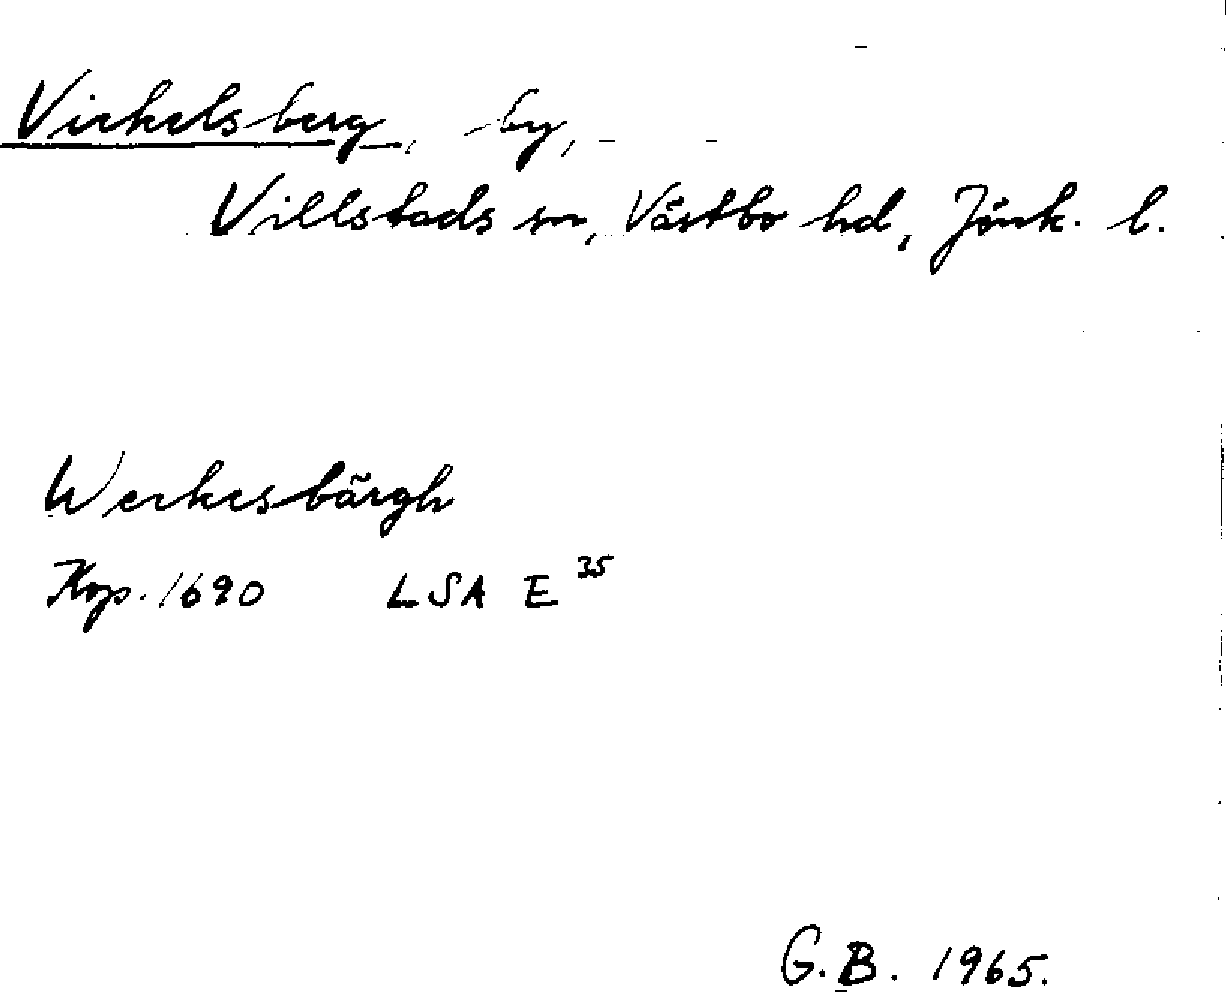 Virkelsberg, by,
Villstads sn, Västbo hd, Jönk. l.
Werkesbärgh
Kop. 1690 LSA E 35
G.B. 1965.